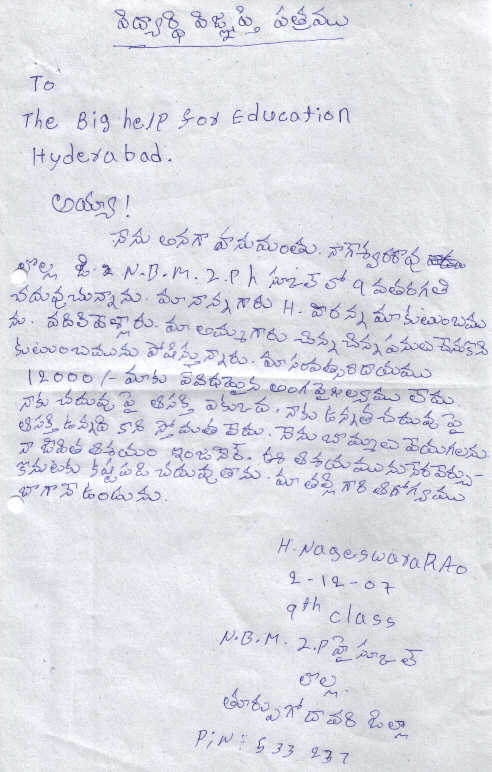 విద్యార్థి విజ్ఞప్తి పత్రము
To
The Big help for Education
Hyderabad.
అయ్యా!
నేను అనగా హనుమంతు. నాగేశ్వరరావు
లొల్ల N.B.M. Z.P h స్కూల్ లో 9 వతరగతి
చదువుచున్నాను. మా నాన్న గారు H. వీరన్న మా కుటుంబము
ను. వదిలివెళ్లారు. మా అమ్మ గారు చిన్న చిన్న పనులు చేసుకొని
కుటుంబమును పోషిస్తున్నారు. మా సంవత్సరాదాయము
12000/- మాకు ఏవిధమైన అంగవైకల్యము లేదు
నాకు చదువు పై ఆసక్తి ఎక్కువ. నాకు ఉన్నత చదువు పై
ఆసక్తి ఉన్నది కాని స్తోమత లేదు. నేను బొమ్మలు వేయగలను
నా జీవిత ఆశయం ఇంజనీర్. ఈ ఆశయమును నేరవేర్చు-
కొనుటకు కష్టపడి చదువుతాను. మా తల్లి గారి ఆరోగ్యము
బాగానే ఉండును.
H. NageswaraRAo
2-12-07
9th class
N.B.M. Z.P హై స్కూల్
లొల్ల
తూర్పుగోదావరి జిల్లా
PiN: 533 237